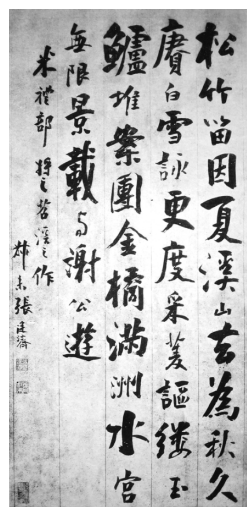 松竹留因夏溪山去為秋久
賡白雪詠更度采菱謳縷玉
鱸堆案團金橘滿洲水宮
無限景載与謝公遊
米禮部將之苕溪之作
叔未張廷濟